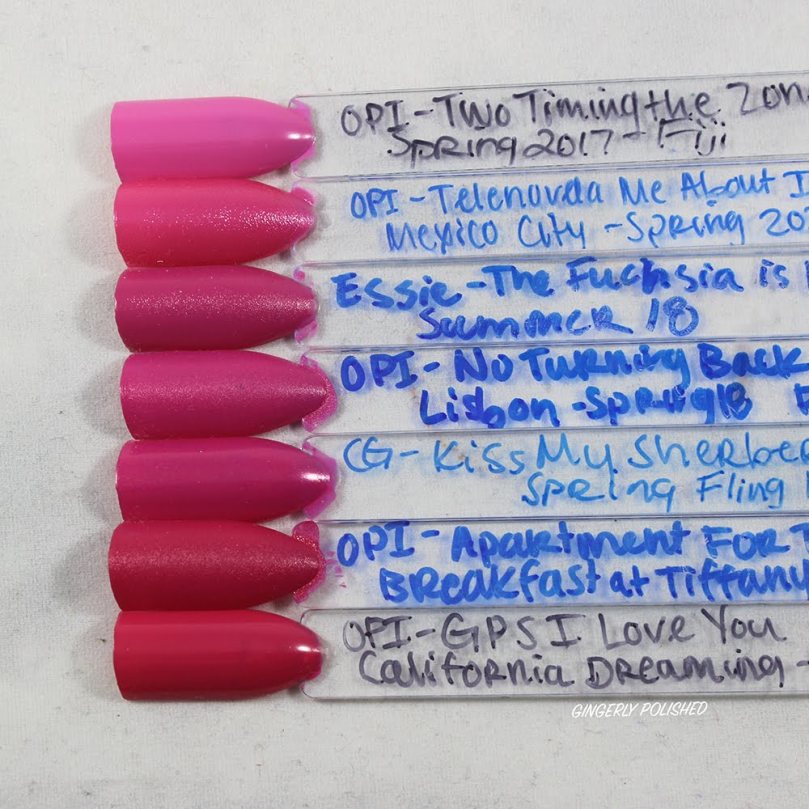 OPI-Two Timing the Zon
Spring 2017 - Fiji
OPI-Telenovela Me About I
Mexico City -Spring 20
Essie-The Fuchsia is
Summer 18
OPI-No Turning Back
Lisbon -Spring18
CG-Kiss My Sherbe
Spring Fling
OPI-Apartment For T
Breakfast at Tiffany
OPI-GPS I Love You
California Dreaming -
GINGERLY POLISHED